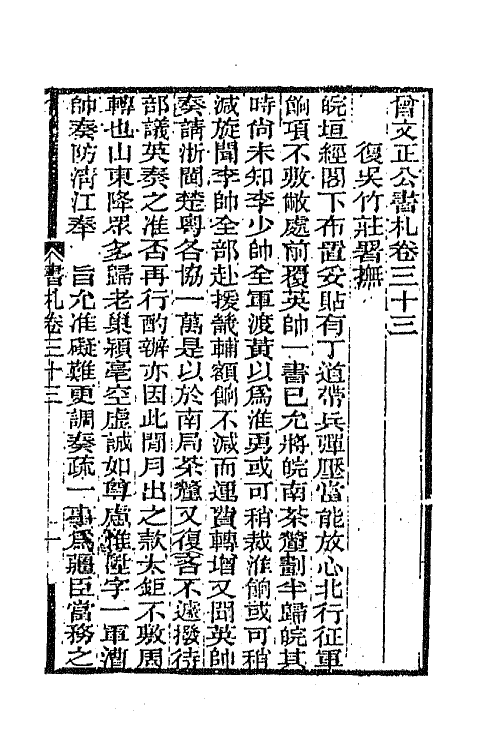 曾文正公書札卷三十三
復吳竹莊署撫
皖垣經閣下布置妥貼有丁道帶兵彈壓當能放心北行征軍
餉項不敷敝處前覆英帥一書已允將皖南茶釐劃半歸皖其
時尚未知李少帥全軍渡黃以為淮勇或可稍裁淮餉或可稍
減旋聞李帥全部赴援畿輔額餉不減而運費轉增又聞英帥
奏請浙閩楚粵各協一萬是以於南局茶釐又復吝不遽撥待
部議英奏之准否再行酌辦亦因此間月出之款太鉅不敷周
轉也山東降眾多歸老巢潁亳空虛誠如尊慮惟陞字一軍酒
帥奏防清江奉　旨允准礙難更調奏疏一事為疆臣當務之
書札卷三十三
一